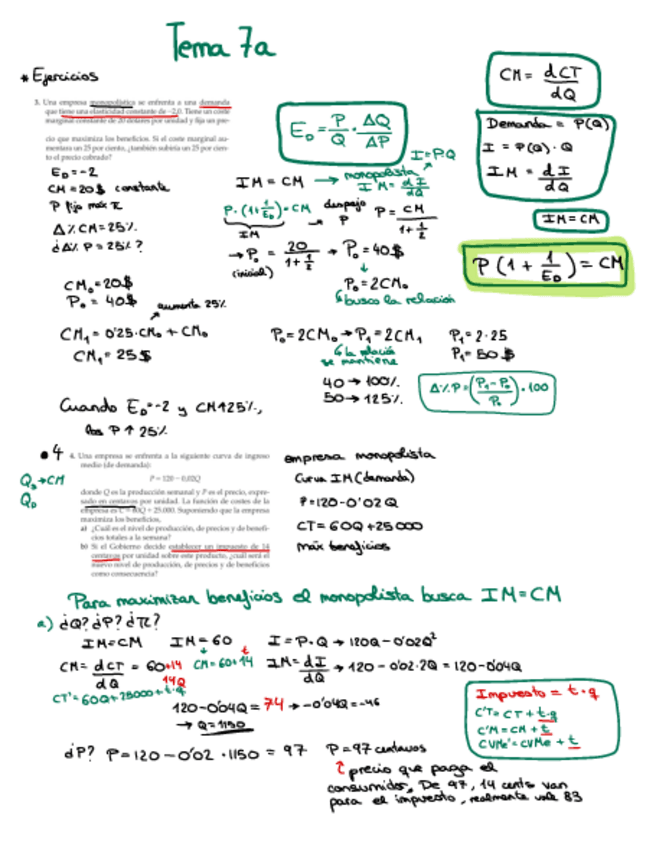 Tema 7a
* Ejercicios
3. Una empresa monopolística se enfrenta a una demanda
que tiene una elasticidad constante de −2,0. Tiene un coste
marginal constante de 20 dólares por unidad y fija un pre-
cio que maximiza los beneficios. Si el coste marginal au-
mentara un 25 por ciento, ¿también subiría un 25 por cien-
to el precio cobrado?
E_D = P/Q · ΔQ/ΔP
CM = dCT/dQ
Demanda = P(Q)
I = P(Q) · Q
IM = dI/dQ
IM = CM
P(1 + 1/E_D) = CM
E_D = -2
CM = 20$ constante
P fijo máx π
Δ% CM = 25%
¿Δ% P = 25%?
I = P·Q
IM = CM → monopolista
IM = dI/dQ
P·(1+1/E_D) = CM
IM
despejo P
P = CM/1+1/2
→ P₀ = 20/1+1/2 → P₀ = 40$
(inicial)
P₀ = 2CM₀
busco la relación
CM₀ = 20$
P₀ = 40$
aumenta 25%
CM₁ = 0'25·CM₀ + CM₀
CM₁ = 25$
P₀ = 2CM₀ → P₁ = 2CM₁
P₁ = 2·25
P₁ = 50$
la relación
se mantiene
40 → 100%
50 → 125%
Δ% P = (P₁-P₀/P₀)·100
Cuando E_D = -2 y CM↑25%,
los P ↑ 25%
• 4
4. Una empresa se enfrenta a la siguiente curva de ingreso
medio (de demanda):
P = 120 − 0,02Q
donde Q es la producción semanal y P es el precio, expre-
sado en centavos por unidad. La función de costes de la
empresa es C = 60Q + 25.000. Suponiendo que la empresa
maximiza los beneficios,
a) ¿Cuál es el nivel de producción, de precios y de benefi-
cios totales a la semana?
b) Si el Gobierno decide establecer un impuesto de 14
centavos por unidad sobre este producto, ¿cuál será el
nuevo nivel de producción, de precios y de beneficios
como consecuencia?
Q_s → CM
Q_D
empresa monopolista
Curva IM (demanda)
P = 120 - 0'02Q
CT = 60Q + 25000
máx beneficios
Para maximizar beneficios el monopolista busca IM = CM
a) ¿Q? ¿P? ¿π?
IM = CM
IM = 60
I = P·Q → 120Q - 0'02Q²
CM = dCT/dQ = 60+14
14Q
CM = 60 + 14
t
IM = dI/dQ → 120 - 0'02·2Q = 120 - 0'04Q
CT' = 60Q + 25000 + t·q
120 - 0'04Q = 74 → -0'04Q = -46
→ Q = 1150
Impuesto = t·q
C'T = CT + t·q
C'M = CM + t
CVMe' = CVMe + t
¿P? P = 120 - 0'02 · 1150 = 97
P = 97 centavos
precio que paga el
consumidor. De 97, 14 cents van
para el impuesto, realmente vale 83